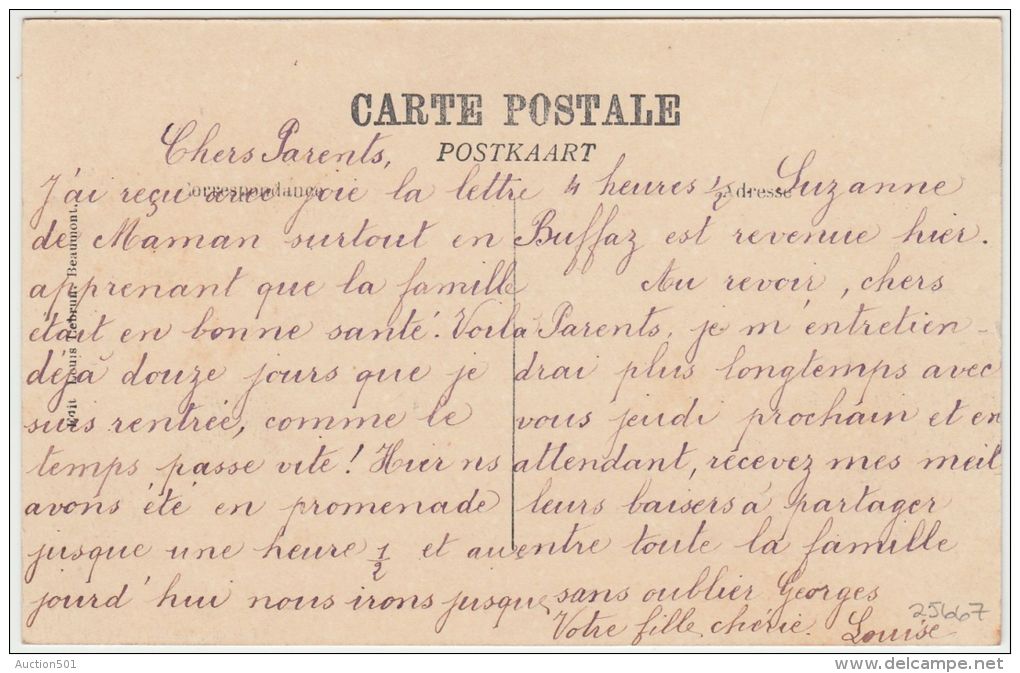 CARTE POSTALE
POSTKAART
Correspondance
Adresse
Edit. Louis Lebrun, Beaumont.
Chers Parents,
J'ai reçu avec joie la lettre
de Maman surtout en
apprenant que la famille
était en bonne santé. Voilà
déjà douze jours que je
suis rentrée, comme le
temps passe vite! Hier ns
avons été en promenade
jusque une heure 1/2 et au
jourd'hui nous irons jusque
4 heures 1/2 Suzanne
Buffaz est revenue hier.
Au revoir, chers
Parents, je m'entretien-
drai plus longtemps avec
vous jeudi prochain et en
attendant, recevez mes meil
leurs baisers à partager
entre toute la famille
sans oublier Georges
Votre fille chérie. Louise
25667
Auction501
www.delcampe.net